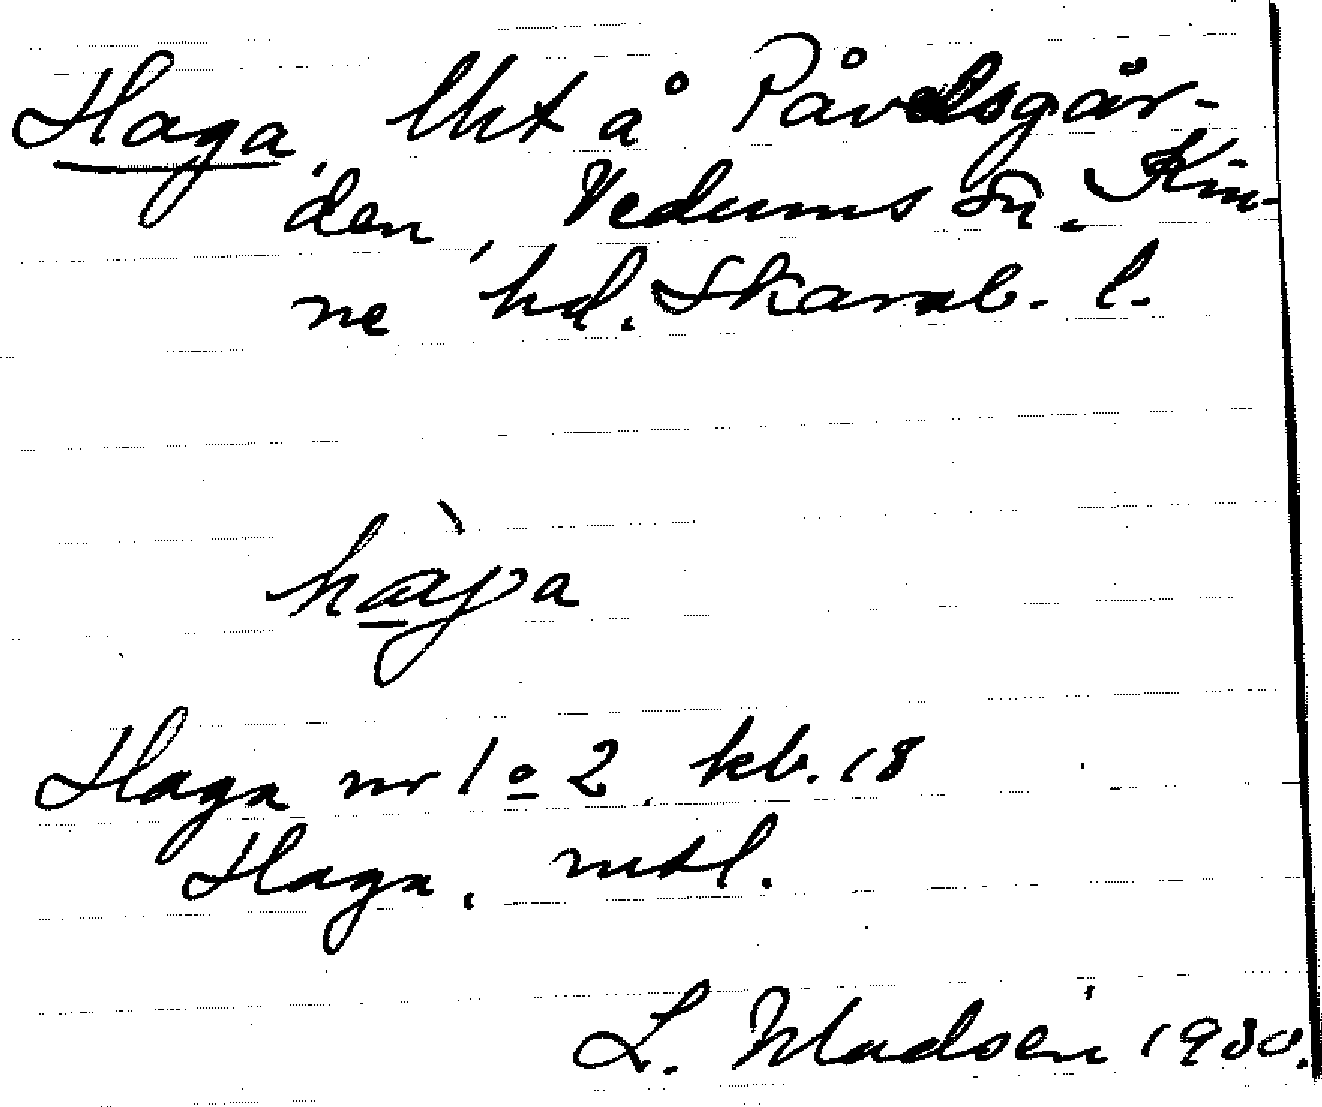 Haga, lht å Påvelsgår-
den, Vedums sn, Kin-
ne hd. Skarab. l.
hàɡa
Haga nr 1 o 2, kb. 18
Haga, mtl.
L. Madsén 1930.